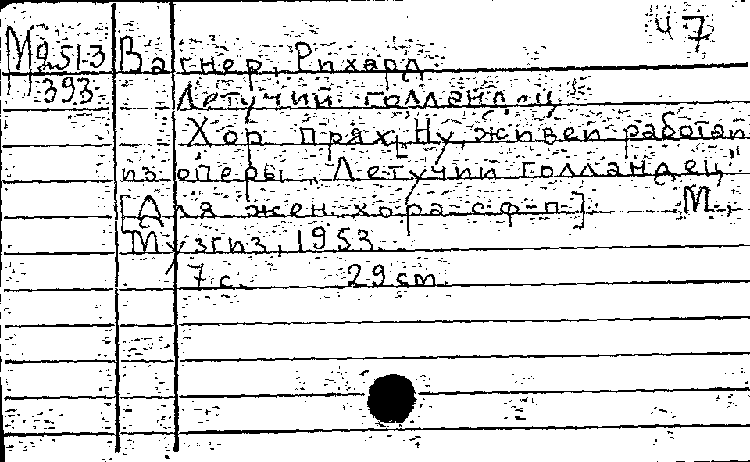 Ч 7
М 251-3 Вагнер, Рихард
393 Летучий голландец
Хор прях „Ну, живей работай
из оперы „Летучий голландец"
[Для жен. хора с ф-п]. М.,
Музгиз, 1953.
7 с. 29 cm.